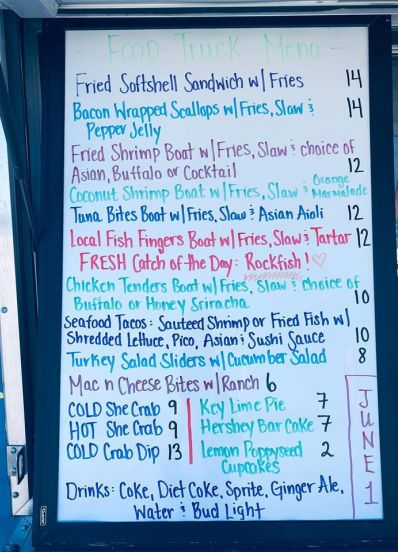 — Food Truck Menu —
Fried Softshell Sandwich w/ Fries 14
Bacon Wrapped Scallops w/ Fries, Slaw & 14
Pepper Jelly
Fried Shrimp Boat w/ Fries, Slaw & choice of
Asian, Buffalo or Cocktail 12
Coconut Shrimp Boat w/ Fries, Slaw & Orange Marmalade
Tuna Bites Boat w/ Fries, Slaw & Asian Aioli 12
Local Fish Fingers Boat w/ Fries, Slaw & Tartar 12
FRESH Catch of the Day: Rockfish! ♡
Chicken Tenders Boat w/ Fries, Slaw & choice of
Buffalo or Honey Sriracha 10
Seafood Tacos: Sauteed Shrimp or Fried Fish w/
Shredded Lettuce, Pico, Asian & Sushi Sauce 10
Turkey Salad Sliders w/ Cucumber Salad 8
Mac n Cheese Bites w/ Ranch 6
COLD She Crab 9
HOT She Crab 9
COLD Crab Dip 13
Key Lime Pie 7
Hershey Bar Cake 7
Lemon Poppyseed 2
Cupcakes
JUNE 1
Drinks: Coke, Diet Coke, Sprite, Ginger Ale,
Water & Bud Light